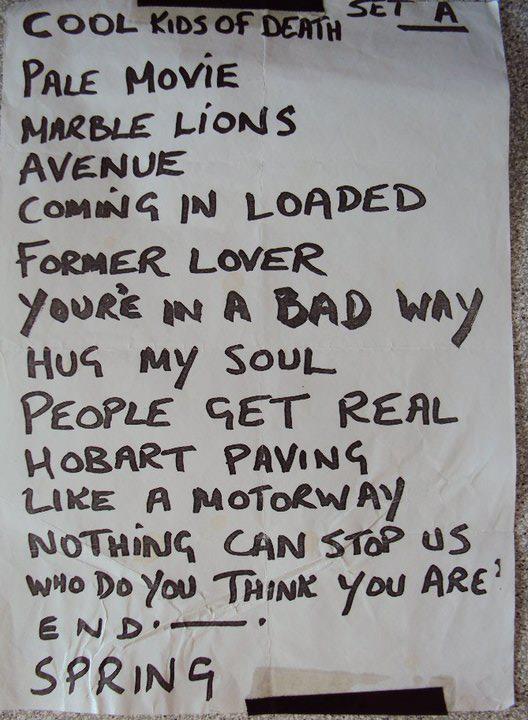 COOL KIDS OF DEATH SET A
PALE MOVIE
MARBLE LIONS
AVENUE
COMING IN LOADED
FORMER LOVER
YOUR'E IN A BAD WAY
HUG MY SOUL
PEOPLE GET REAL
HOBART PAVING
LIKE A MOTORWAY
NOTHING CAN STOP US
WHO DO YOU THINK YOU ARE?
END. —.
SPRING